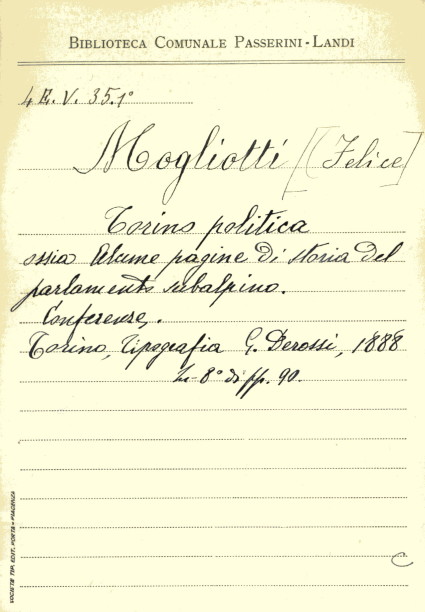 BIBLIOTECA COMUNALE PASSERINI-LANDI
4 E. V. 35.1°
Mogliotti [(Felice]
Torino politica
ossia Alcune pagine di storia del
parlamento subalpino.
Conferenze.
Torino, Tipografia G. Derossi, 1888
In-8° di pp. 90.
C
SOCIETÀ TIP. EDIT. PORTA - PIACENZA